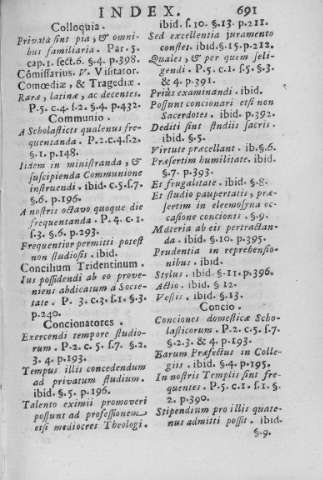 INDEX. 691
Colloquia.
Privata sint pia, & omnibus
familiaria. Par. 5.
cap. 1. sect. 6. §. 4. p. 398.
Cõmissarius. V. Visitator.
Comœdiæ, & Tragediæ.
Rara, latinæ, ac decentes.
P. 5. c. 4. s. 2. §. 4. p. 432.
Communio.
A Scholasticis qualenus frequentanda.
P. 2. c. 4. s. 2.
§. 1. p. 148.
Iisdem in ministranda, &
suscipienda Communione
instruendi. ibid. c. 5. s. 7.
§. 6. p. 196.
A nostris octavo quoque die
frequentanda. P. 4. c. 1.
s. 3. §. 6. p. 293.
Frequentior permitti potest
non studiosis. ibid.
Concilium Tridentinum.
Ius possidendi ab eo proveniens
abdicatum a Societate.
P. 3. c. 3. s. 1. §. 3.
p. 240.
Concionatores.
Exercendi tempore studiorum.
P. 2. c. 5. s. 7. §. 2.
3. 4. p. 193.
Tempus illis concedendum
ad privatum studium.
ibid. §. 5. p. 196.
Talento eximii promoveri
possunt ad professionem
etsi mediocres Theologi.
ibid. s. 10. §. 13. p. 211.
Sed excellentia juramento
constet. ibid. §. 15. p. 212.
Quales, & per quem jeligendi.
P. 5. c. 1. s. 5. §. 3.
& 4. p. 391.
Prius examinandi. ibid.
Possunt concionari etsi non
Sacerdotes. ibid. p. 392.
Dediti sint studiis sacris.
ibid. §. 5.
Virtute præcellant. ib. §. 6.
Præsertim humilitate. ibid.
§. 7. p. 393.
Et frugalitate. ibid. §. 8.
Et studio paupertatis, præsertim
in eleemosyna occasione
concionis. §. 9.
Materia ab eis pertractanda.
ibid. §. 10. p. 395.
Prudentia in reprehensionibus.
ibid.
Stylus. ibid. §. 11. p. 396.
Actio. ibid. § 12.
Vestis. ibid. §. 13.
Concio.
Conciones domesticæ Scholasticorum.
P. 2. c. 5. s. 7.
§. 2. 3. & 4. p. 193.
Earum Præfectus in Collegiis.
ibid. §. 4. p. 195.
In nostris Templis sint frequentes.
P. 5. c. 1. s. 1. §.
2. p. 390.
Stipendium pro illis quatenus
admitti possit. ibid.
§. 9.